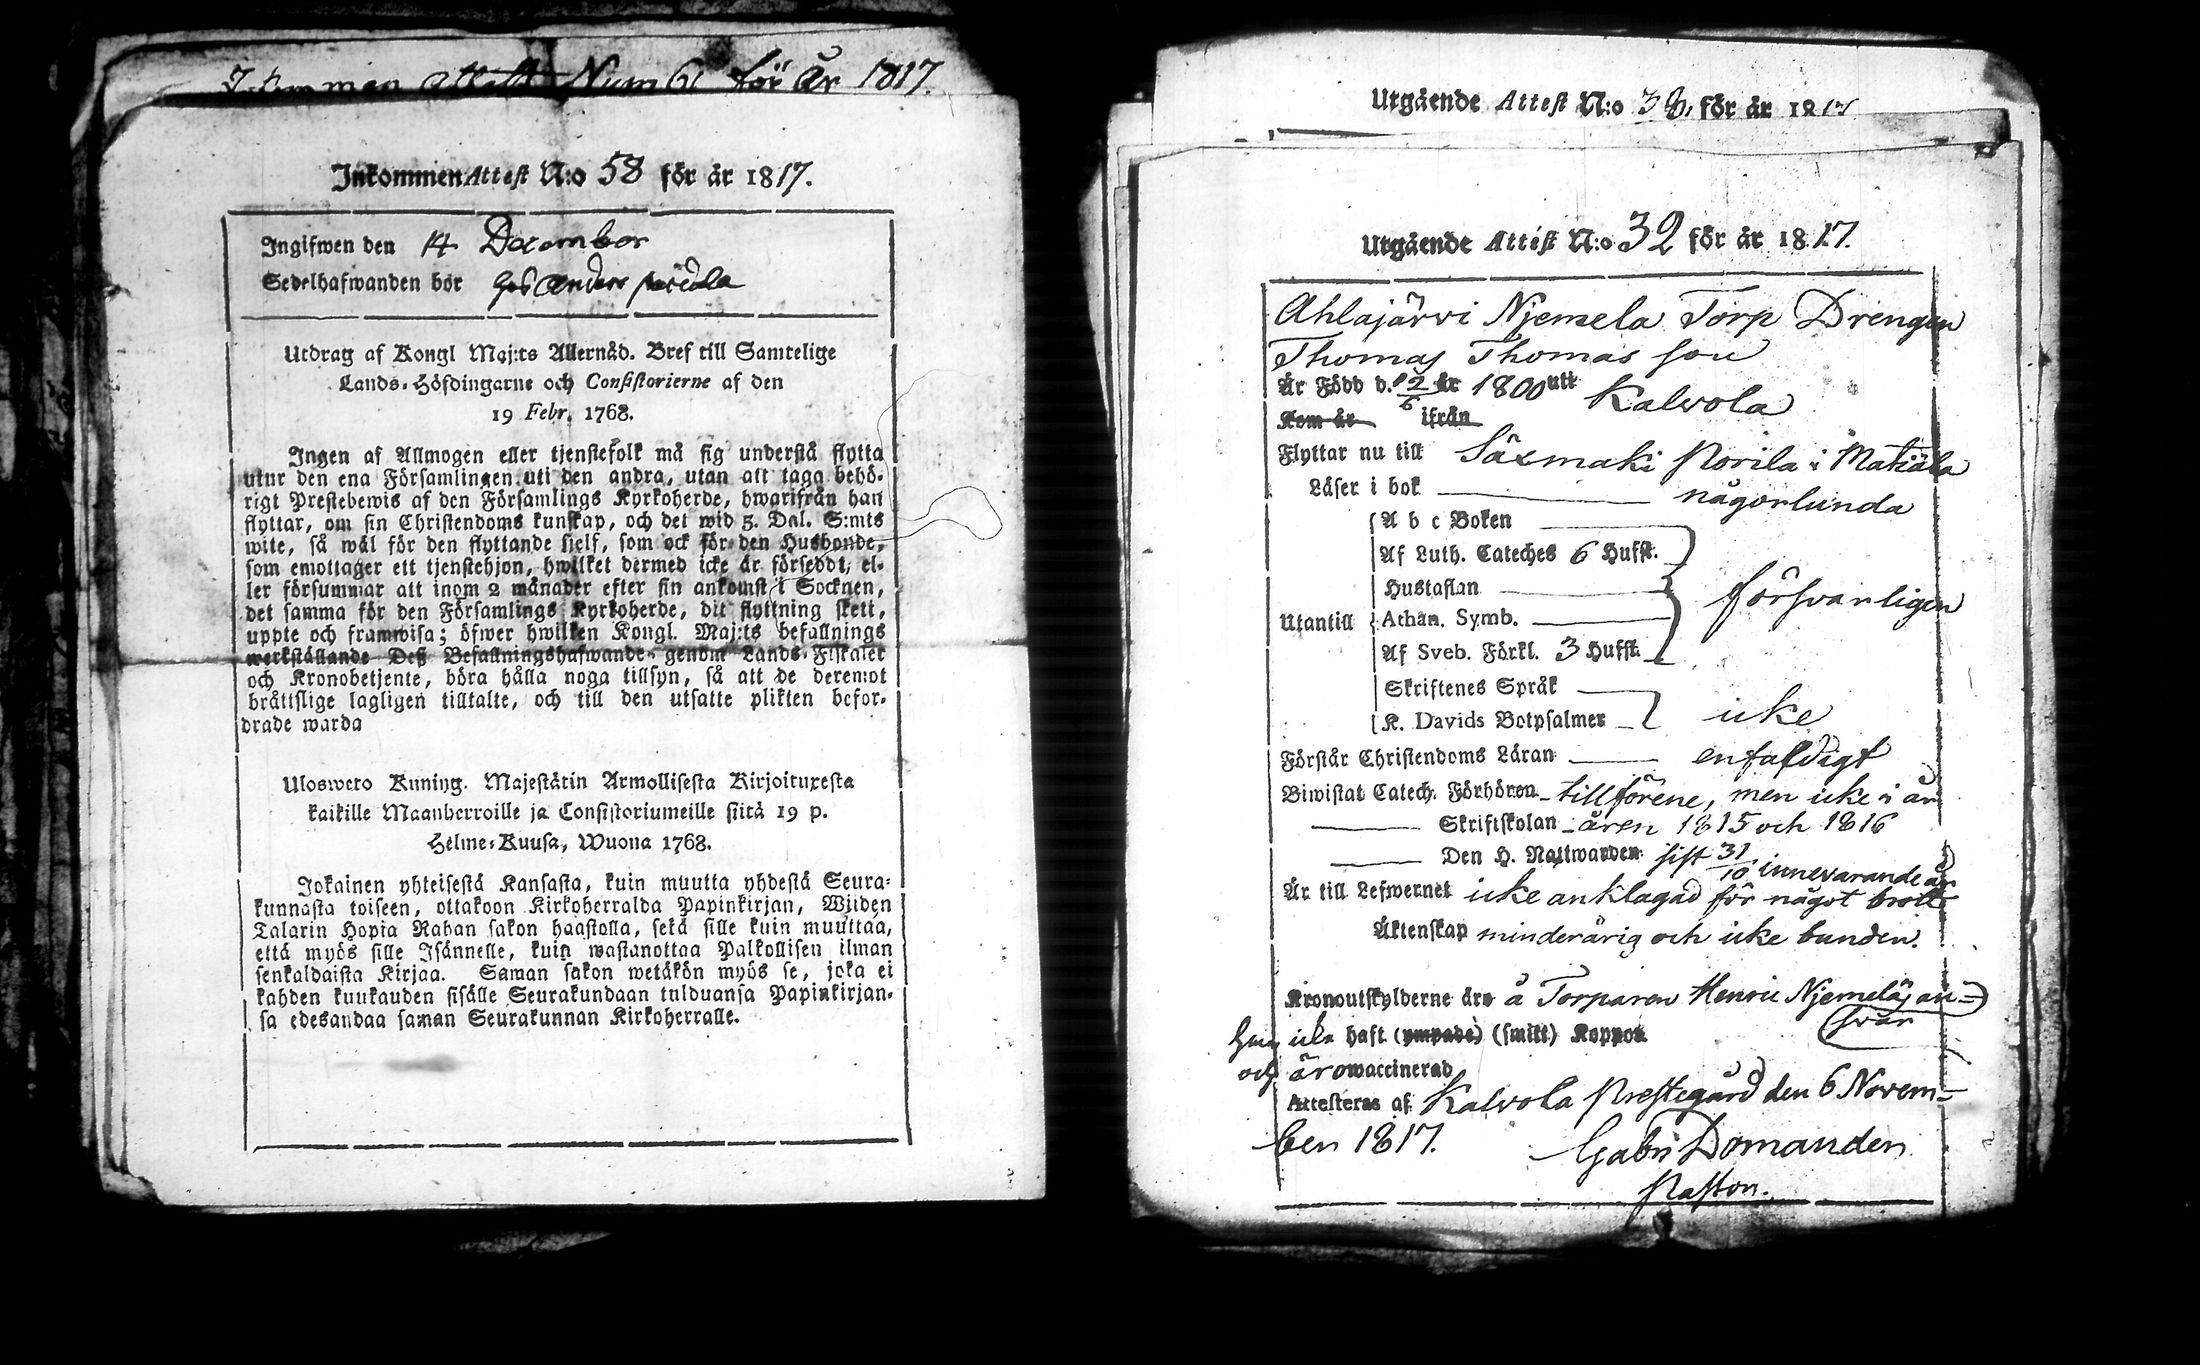 Inkommen attest Num 61 för år 1817.
Inkommen Attest N:o 58 för år 1817.
Ingifwen den 14 December
Sedelhafwanden bor hos Anders
Utdrag af Kongl Maj:ts Allernåd. Bref till Samtelige
Lands-Höfdingarne och Consistorierne af den
19 Febr. 1768.
Ingen af Allmogen eller tjenstefolk må sig understå flytta
utur den ena Församlingen uti den andra, utan att taga behö-
rigt Prestebewis af den Församlings Kyrkoherde, hwarifrån han
flyttar, om sin Christendoms kunskap, och det wid 5. Dal. S:mts
wite, så wäl för den flyttande sjelf, som ock för den Husbonde,
som emottager ett tjenstehjon, hwilket dermed icke är försedt, el-
ler försummar att inom 2 månader efter sin ankomst i Socknen,
det samma för den Församlings Kyrkoherde, dit flyttning skett,
uppte och framwisa; öfwer hwilken Kongl. Maj:ts befallnings
werkställande Deß Befallningshafwande genom Lands-Fiskaler
och Kronobetjente, böra hålla noga tillsyn, så att de deremot
bråttslige lagligen tilltalte, och till den utsatte plikten befor-
drade warda
Ulosweto Kuning. Majestätin Armollisesta Kirjoituxesta
kaikille Maanherroille ja Consistoriumeille siitä 19 p.
Helme-Kuusa, Wuona 1768.
Jokainen yhteisestä Kansasta, kuin muutta yhdestä Seura-
kunnasta toiseen, ottakoon Kirkoherralda Papinkirjan, Wiiden
Talarin Hopia Rahan sakon haastolla, sekä sille kuin muuttaa,
että myös sille Isännelle, kuin wastanottaa Palkollisen ilman
senkaldaista Kirjaa. Saman sakon wetäkön myös se, joka ei
kahden kuukauden sisälle Seurakundaan tulduansa Papinkirjan-
sa edesandaa saman Seurakunnan Kirkoherralle.
Utgående Attest N:o 38, för år 1817
Utgående Attest N:o 32 för år 1817.
Ahlajärvi Njemela Torp Drengen
Thomas Thomas son
Är Född d. 2/6 år 1800 utt Kalvola
Kom år ifrån
Flyttar nu till Säxmäki Rorila i Matiäla
Läser i bok någorlunda
A b c Boken
Af Luth. Cateches 6 Hufst.
Hustaflan
försvarligen
Utantill Athan. Symb.
Af Sveb. Förkl. 3 Hufst.
Skriftenes Språk
K. Davids Botpsalmer icke
Förstår Christendoms Läran enfaldigt
Biwistat Catech. Förhören tillförene, men icke i år
Skriftskolan åren 1815 och 1816
Den H. Nattwarden sist 31/10 innevarande år
Är till Lefwernet icke anklagad för något brott
Äktenskap minderårig och icke bunden.
Kronoutskylderne äro å Torparen Henric Njemeläs an-
svar
Har icke haft (ympade) (smitt) Koppor
och äro waccinerad
Attesteras af Kalvola Prestegård den 6 Novem-
ber 1817. Gabr Domander
Pastor.